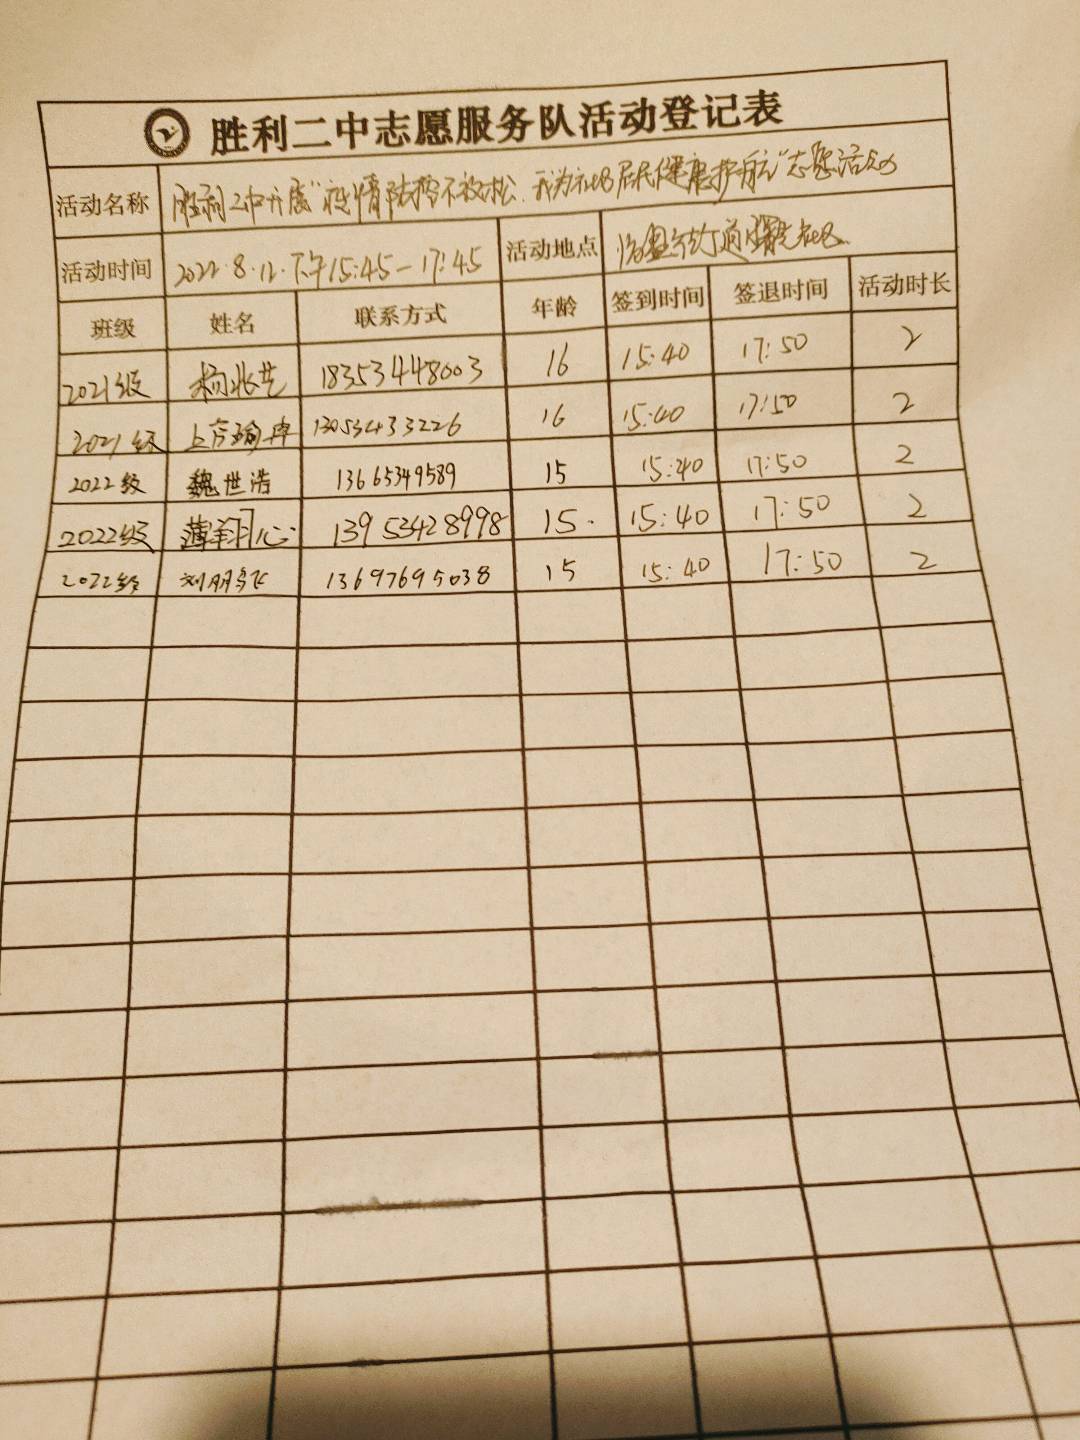 胜利二中志愿服务队活动登记表
活动名称 胜利二中开展"疫情防控不放松,我为社区居民健康护航"志愿活动
活动时间 2022.8.12.下午15:45-17:45 活动地点 社区
班级 姓名 联系方式 年龄 签到时间 签退时间 活动时长
2021级 杨兆艺 18353448003 16 15:40 17:50 2
2021级 上官 13053433226 16 15:40 17:50 2
2022级 魏世浩 13665349589 15 15:40 17:50 2
2022级 薄翔心 13953428998 15. 15:40 17:50 2
2022级 刘朋飞 13697695038 15 15:40 17:50 2